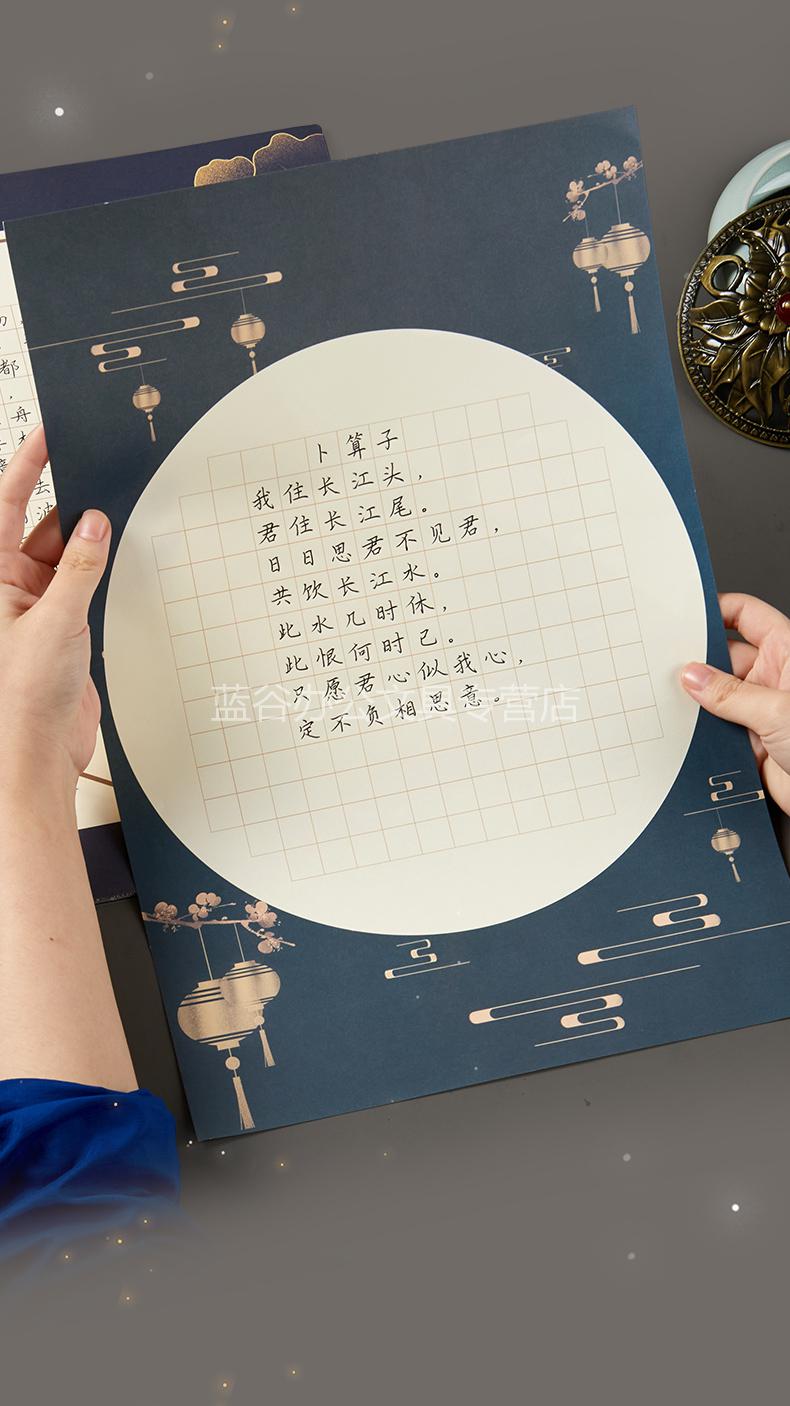 卜算子
我住长江头，
君住长江尾。
日日思君不见君，
共饮长江水。
此水几时休，
此恨何时已。
只愿君心似我心，
定不负相思意。
蓝谷办公文具专营店
都
，
舟
去
波